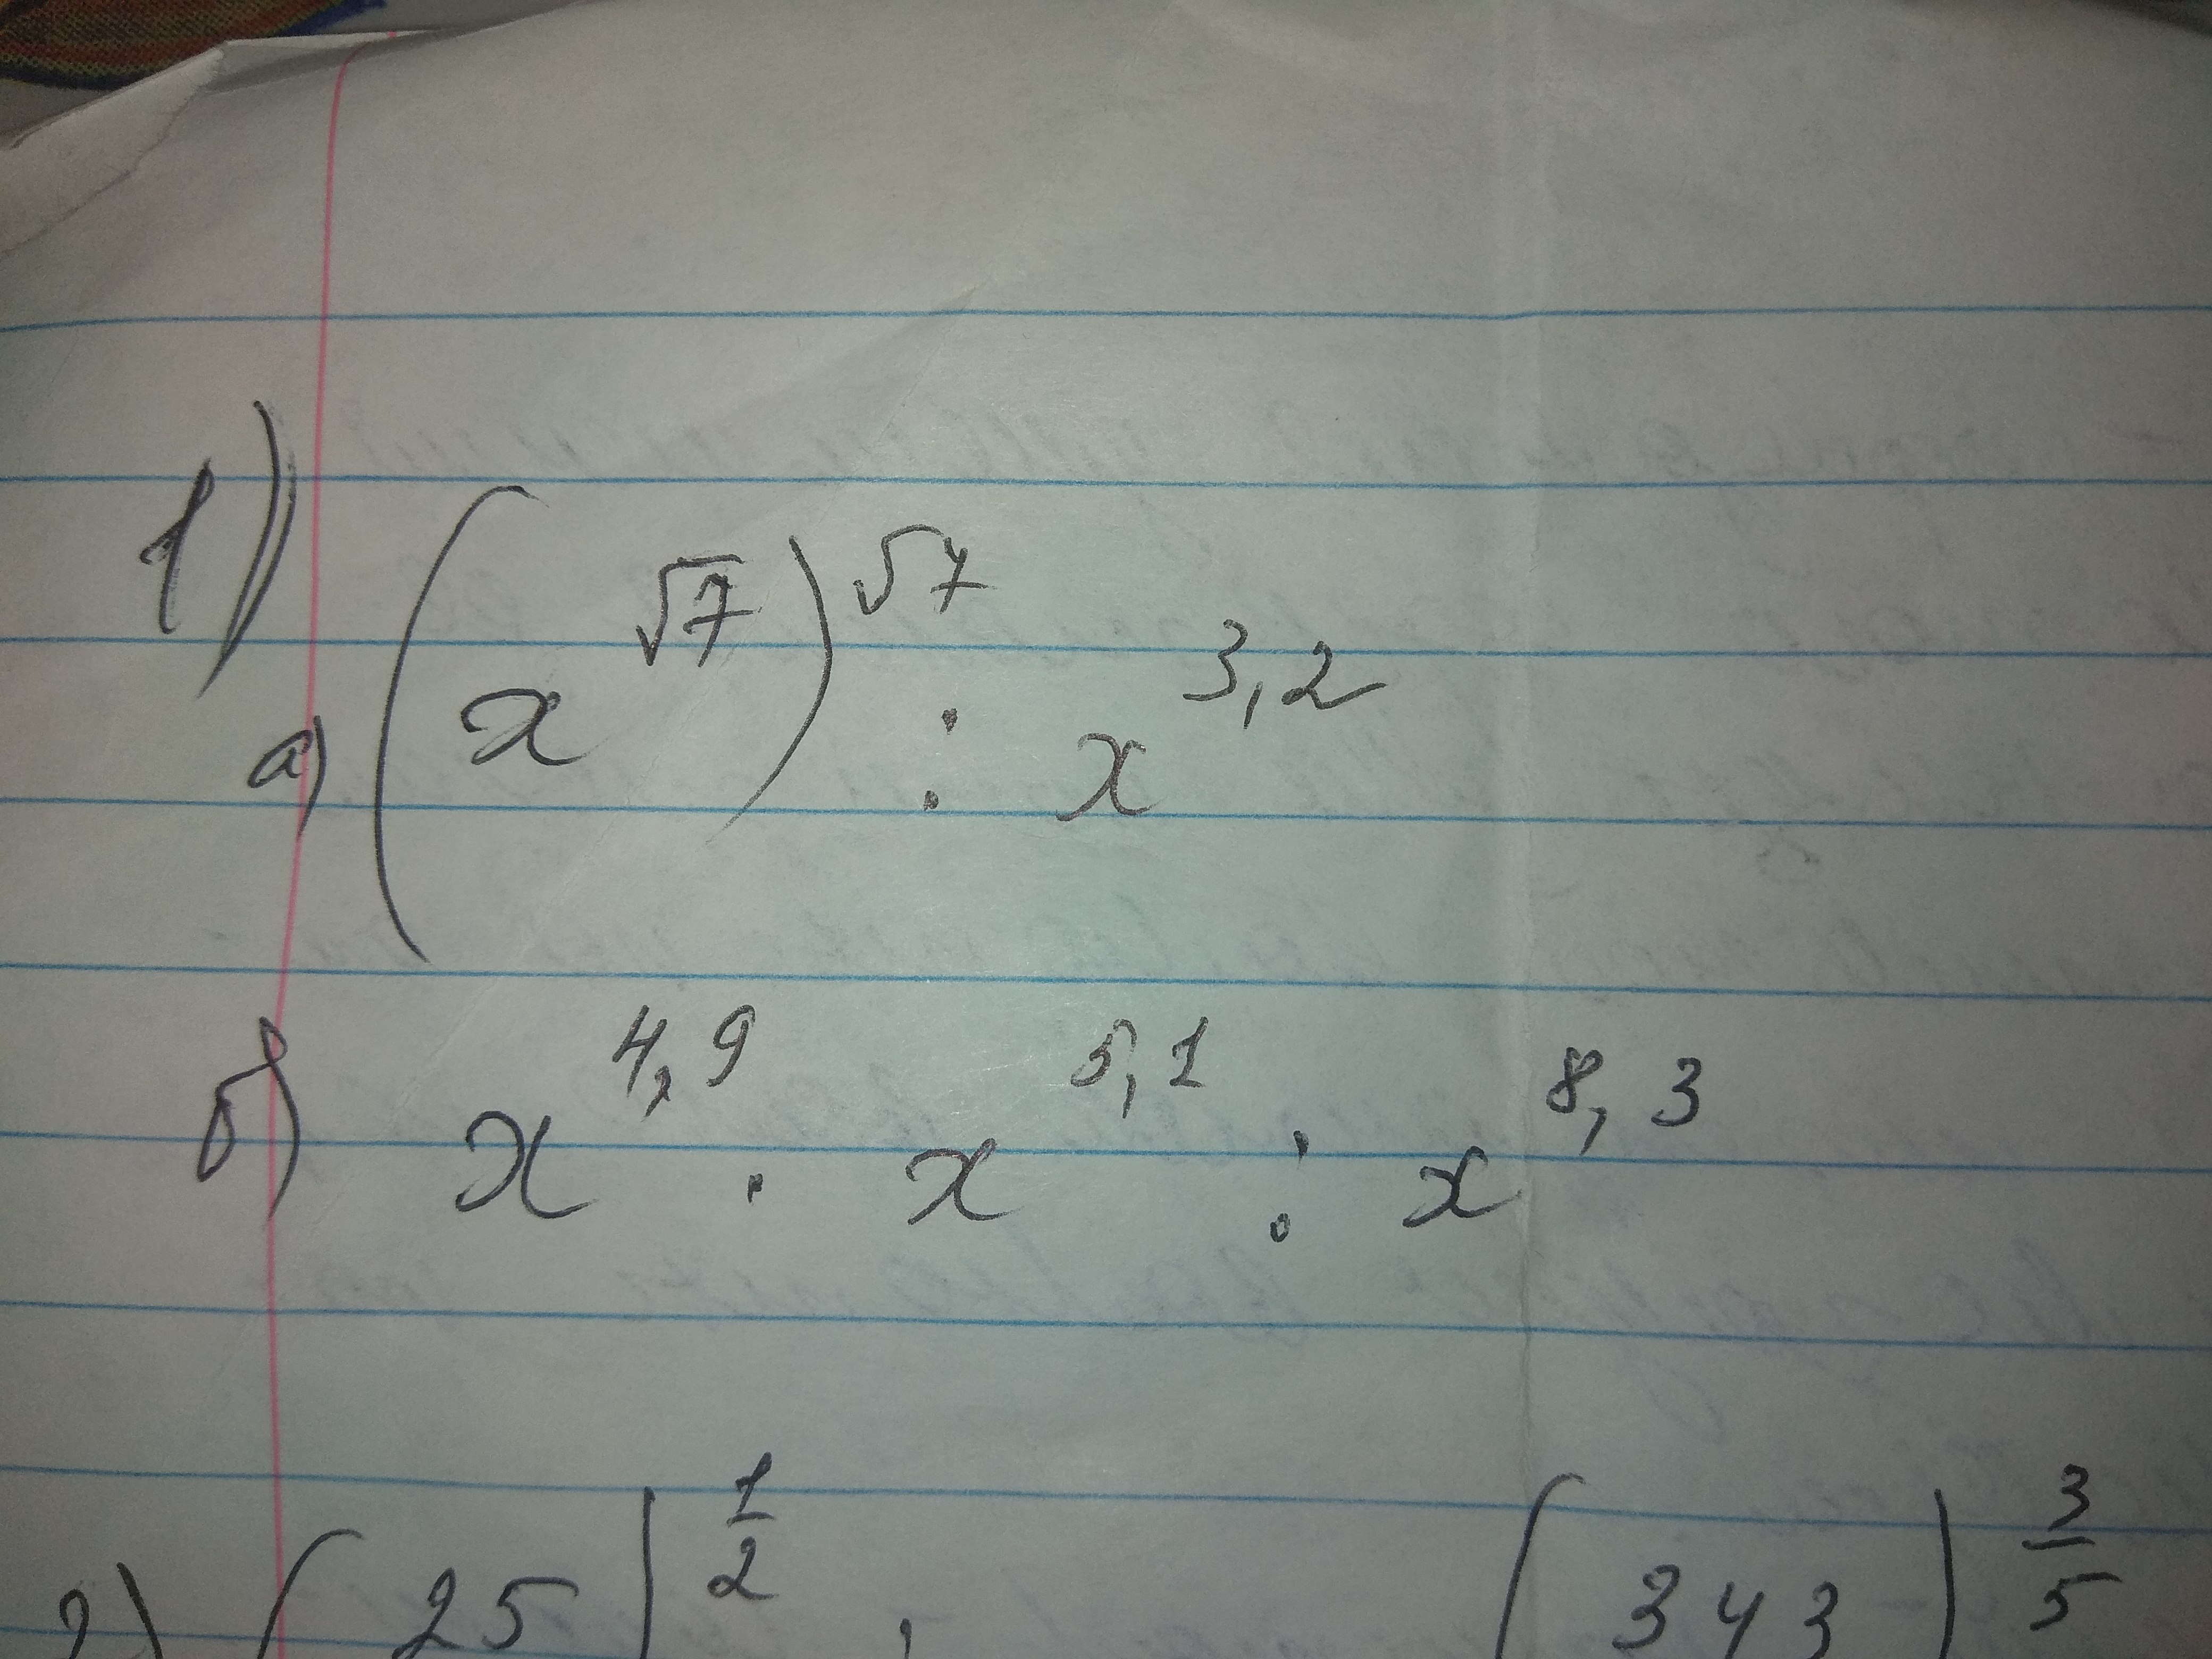 1)
а) (x^√7)^√7 : x^3,2
б) x^4,9 · x^5,1 : x^8,3
2) (25)^1/2 , (343)^3/5